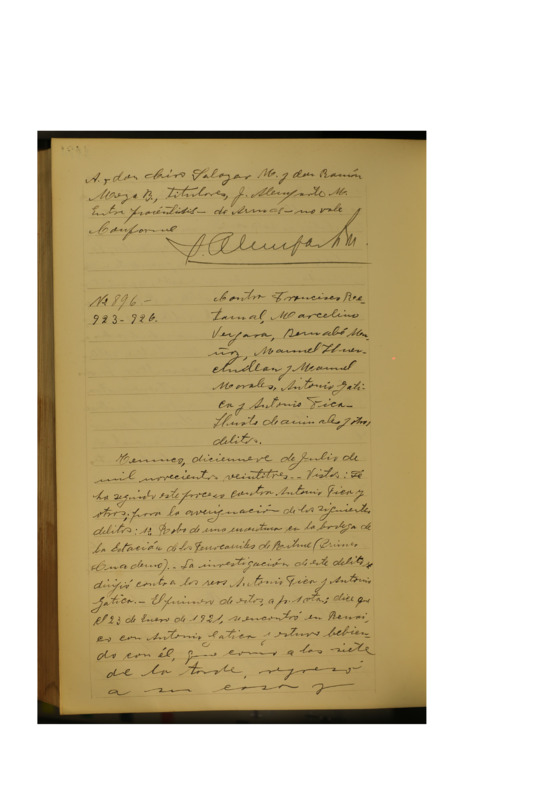 A. y don Ciro Salazar M. y don Ramón
Meza B, titulares, J. Alemparte M.
Entre paréntesis - de Armas - no vale
Conforme
J. Alemparte M.
Nº 896 -
923-926.
Contra Francisco Re-
tamal, Marcelino
Vergara, Bernabé Mu-
ñoz, Manuel Huen-
chullan y Manuel
Morales, Antonio Gati-
ca y Antonio Fica -
Hurto de animales y otros
delitos.
Temuco, diecinueve de Julio de
mil novecientos veintitres. - Vistos: Se
ha seguido este proceso contra Antonio Fica y
otros, para la averiguación de los siguientes
delitos: 1º Robo de una en la bodega de
la Estación de los Ferrocarriles de (Primer
cuaderno). - La investigación de este delito se
dirigió contra los reos Antonio Fica y Antonio
Gatica. - El primero de estos, a fs. dice que
el 23 de Enero de 1921, se encontró en Renai-
co con Antonio Gatica y estuvo bebien-
do con él, que como a las siete
de la tarde, regresó
a su casa y